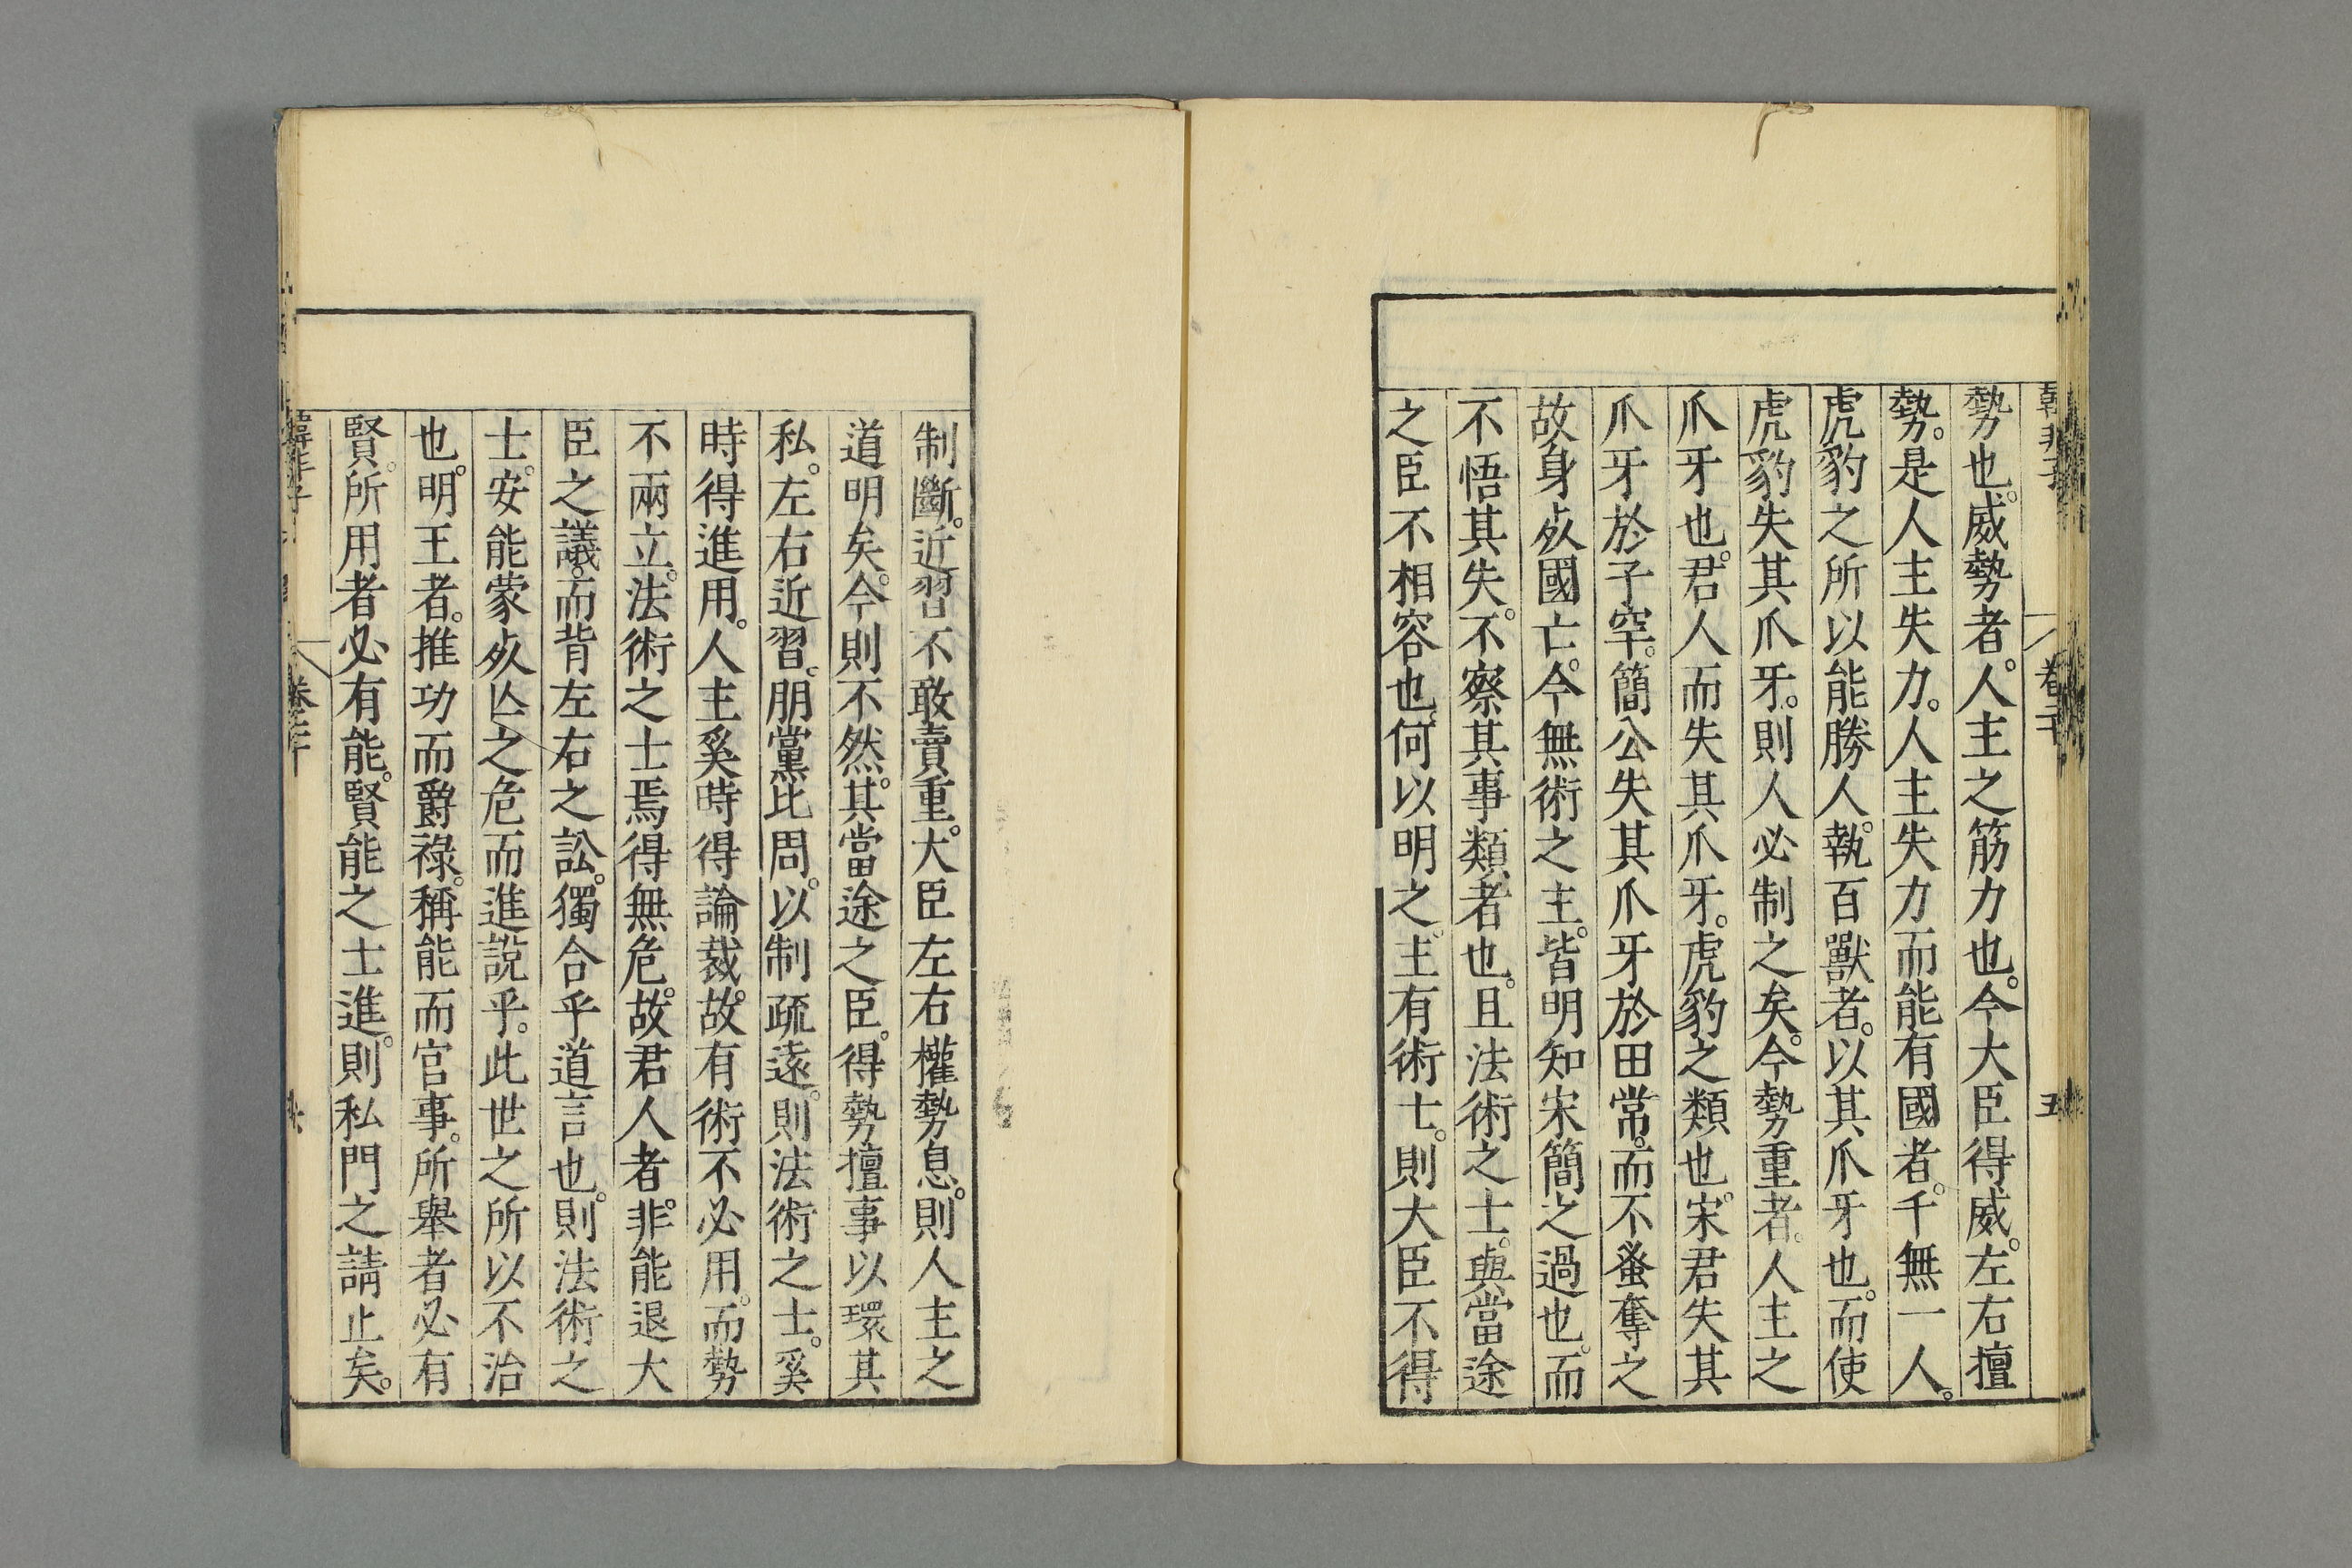 韓非子 卷二十 五
勢也。威勢者。人主之筋力也。今大臣得威。左右擅
勢。是人主失力。人主失力而能有國者。千無一人。
虎豹之所以能勝人。執百獸者。以其爪牙也。而使
虎豹失其爪牙。則人必制之矣。今勢重者。人主之
爪牙也。君人而失其爪牙。虎豹之類也。宋君失其
爪牙於子罕。簡公失其爪牙於田常。而不蚤奪之
故身死國亡。今無術之主。皆明知宋簡之過也。而
不悟其失。不察其事類者也。且法術之士。與當途
之臣不相容也。何以明之。主有術士。則大臣不得
制斷。近習不敢賣重。大臣左右權勢息。則人主之
道明矣。今則不然。其當途之臣。得勢擅事以環其
私。左右近習。朋黨比周。以制疏遠。則法術之士。奚
時得進用。人主奚時得論裁。故有術不必用。而勢
不兩立。法術之士焉得無危。故君人者。非能退大
臣之議。而背左右之訟。獨合乎道言也。則法術之
士。安能蒙死亡之危而進說乎。此世之所以不治
也。明王者。推功而爵祿。稱能而官事。所舉者必有
賢。所用者必有能。賢能之士進。則私門之請止矣。
韓非子 卷二十